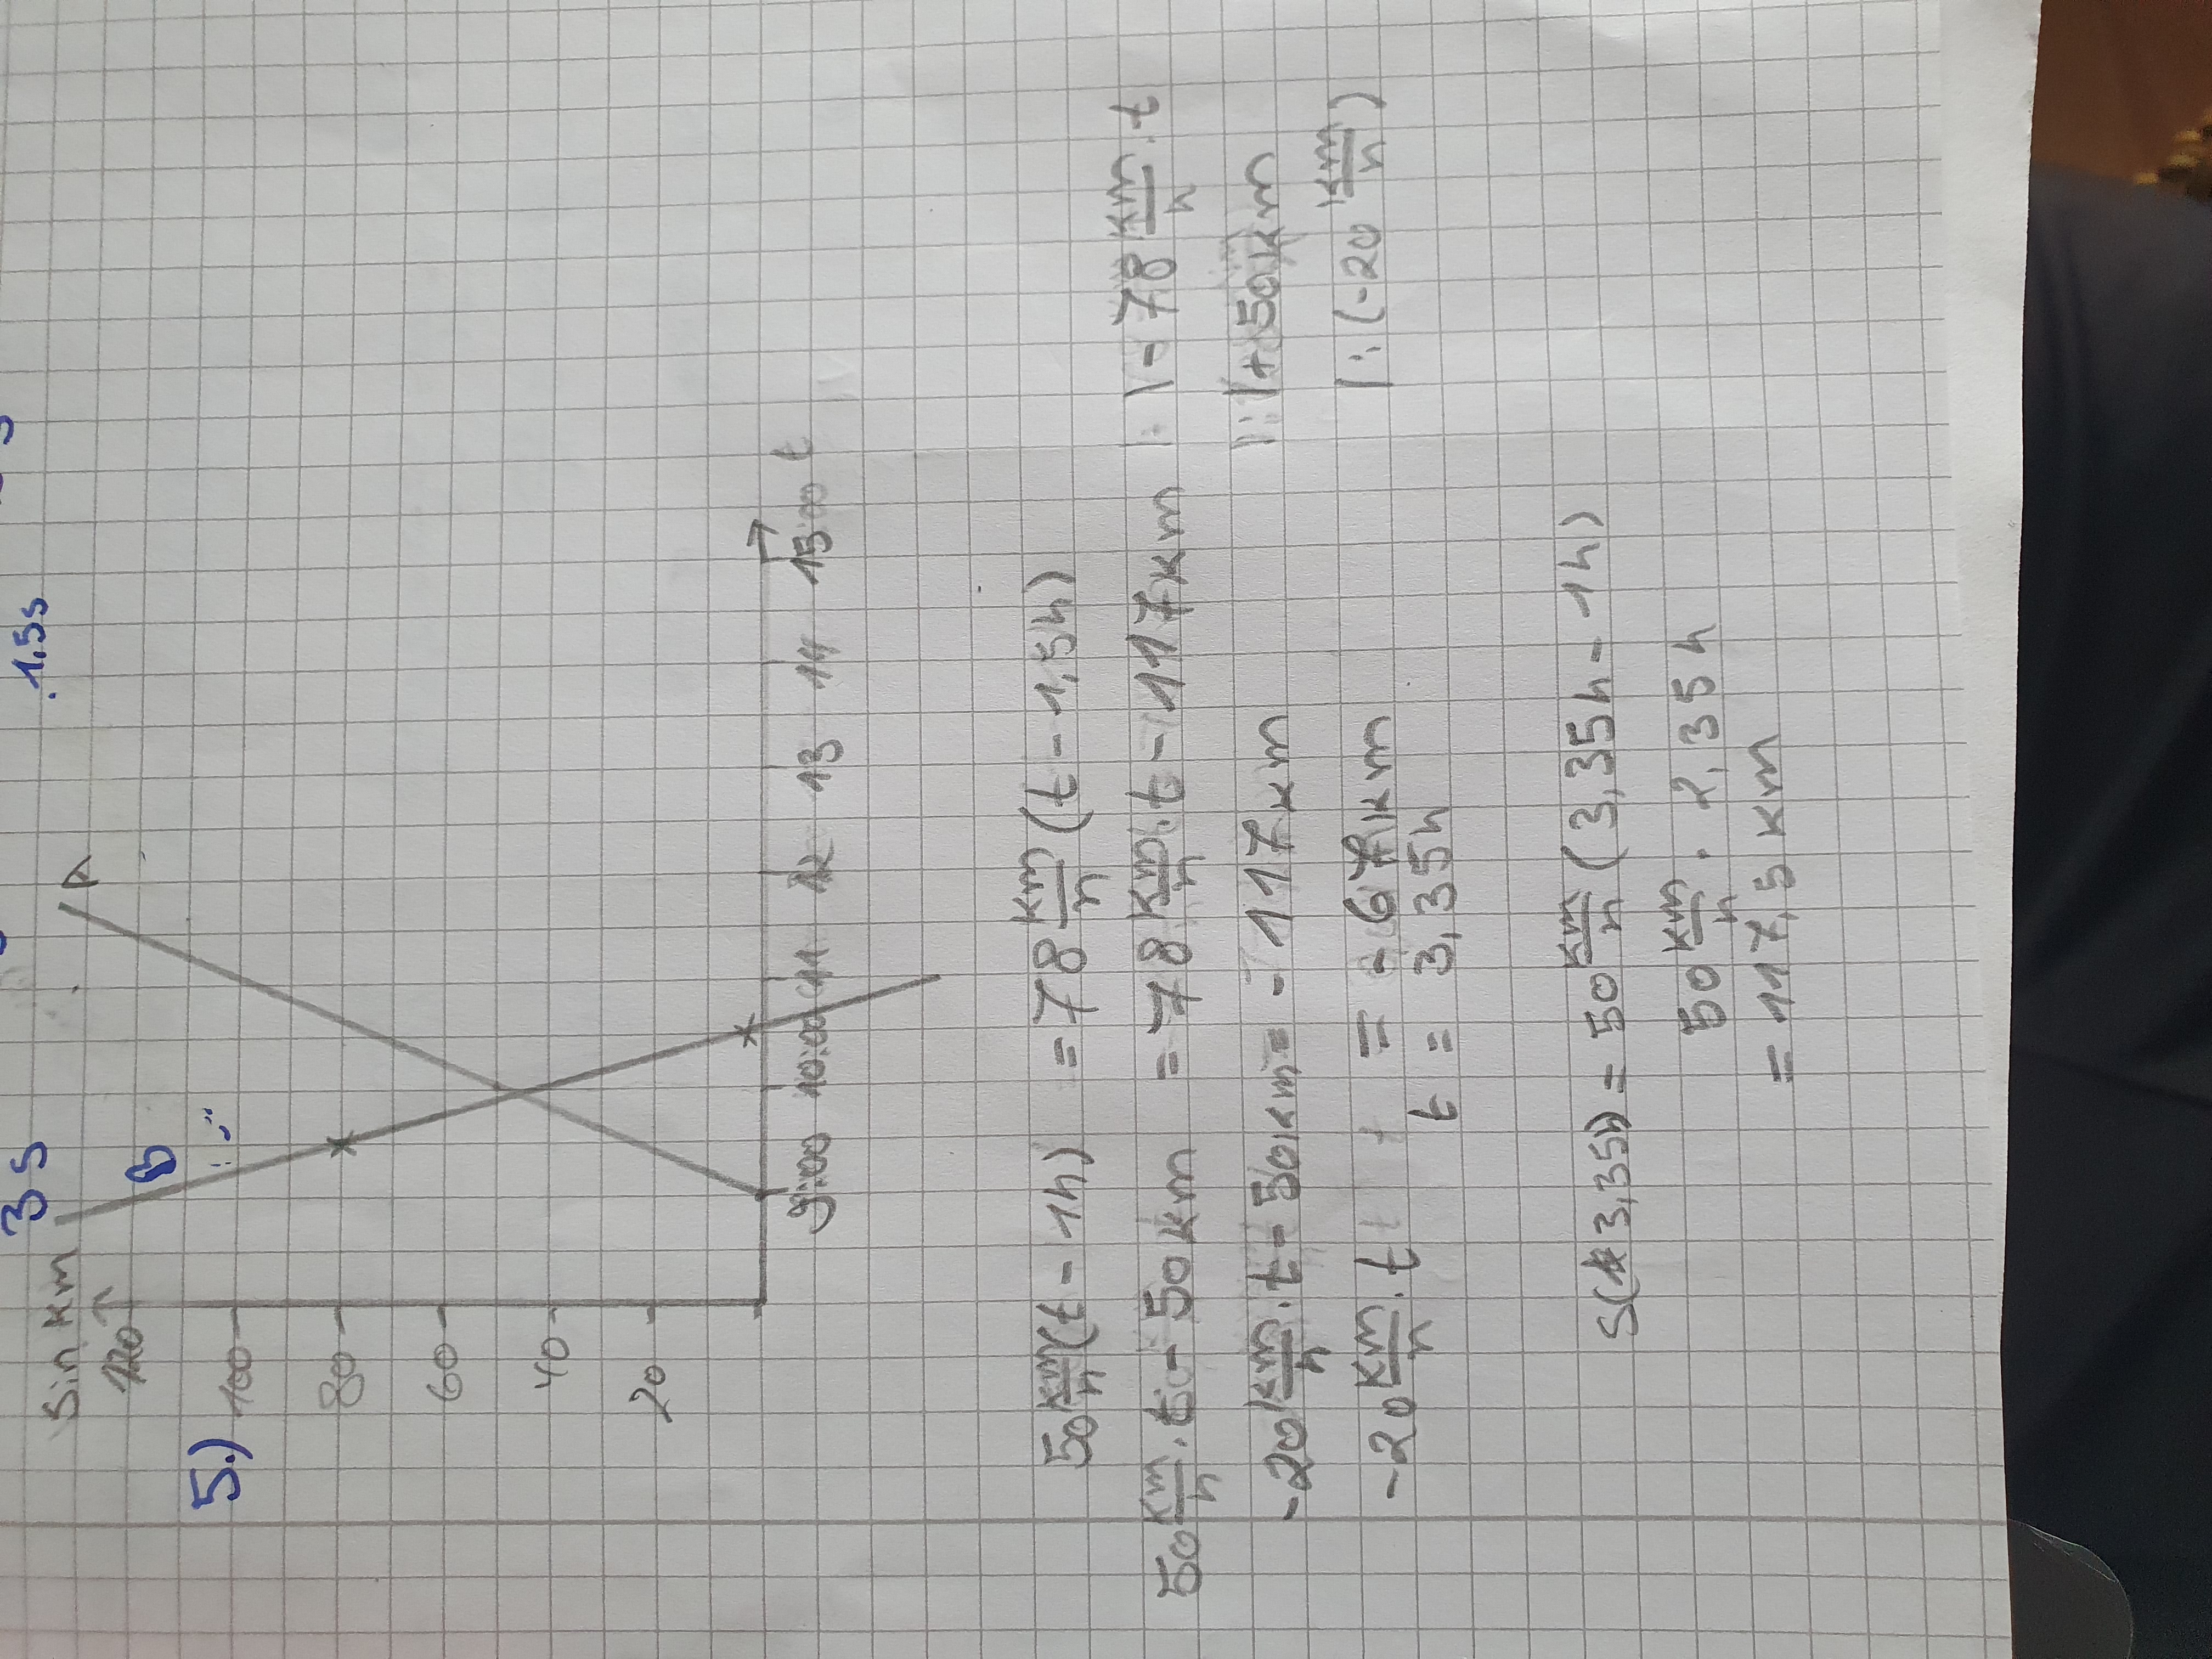 3 s . 1,5s
S in km
A
120
B
5.) 100
80
60
40
20
9:00 10:00 11 12 13 14 15:00 t
50 km/h (t - 1h) = 78 km/h (t - 1,5h)
50 km/h · t - 50km = 78 km/h · t - 117km | - 78 km/h · t
-20 km/h · t - 50km = - 117km | + 50km
-20 km/h · t = - 67km | : (-20 km/h)
t = 3,35h
S(3,35h) = 50 km/h (3,35h - 1h)
50 km/h · 2,35h
= 117,5 km